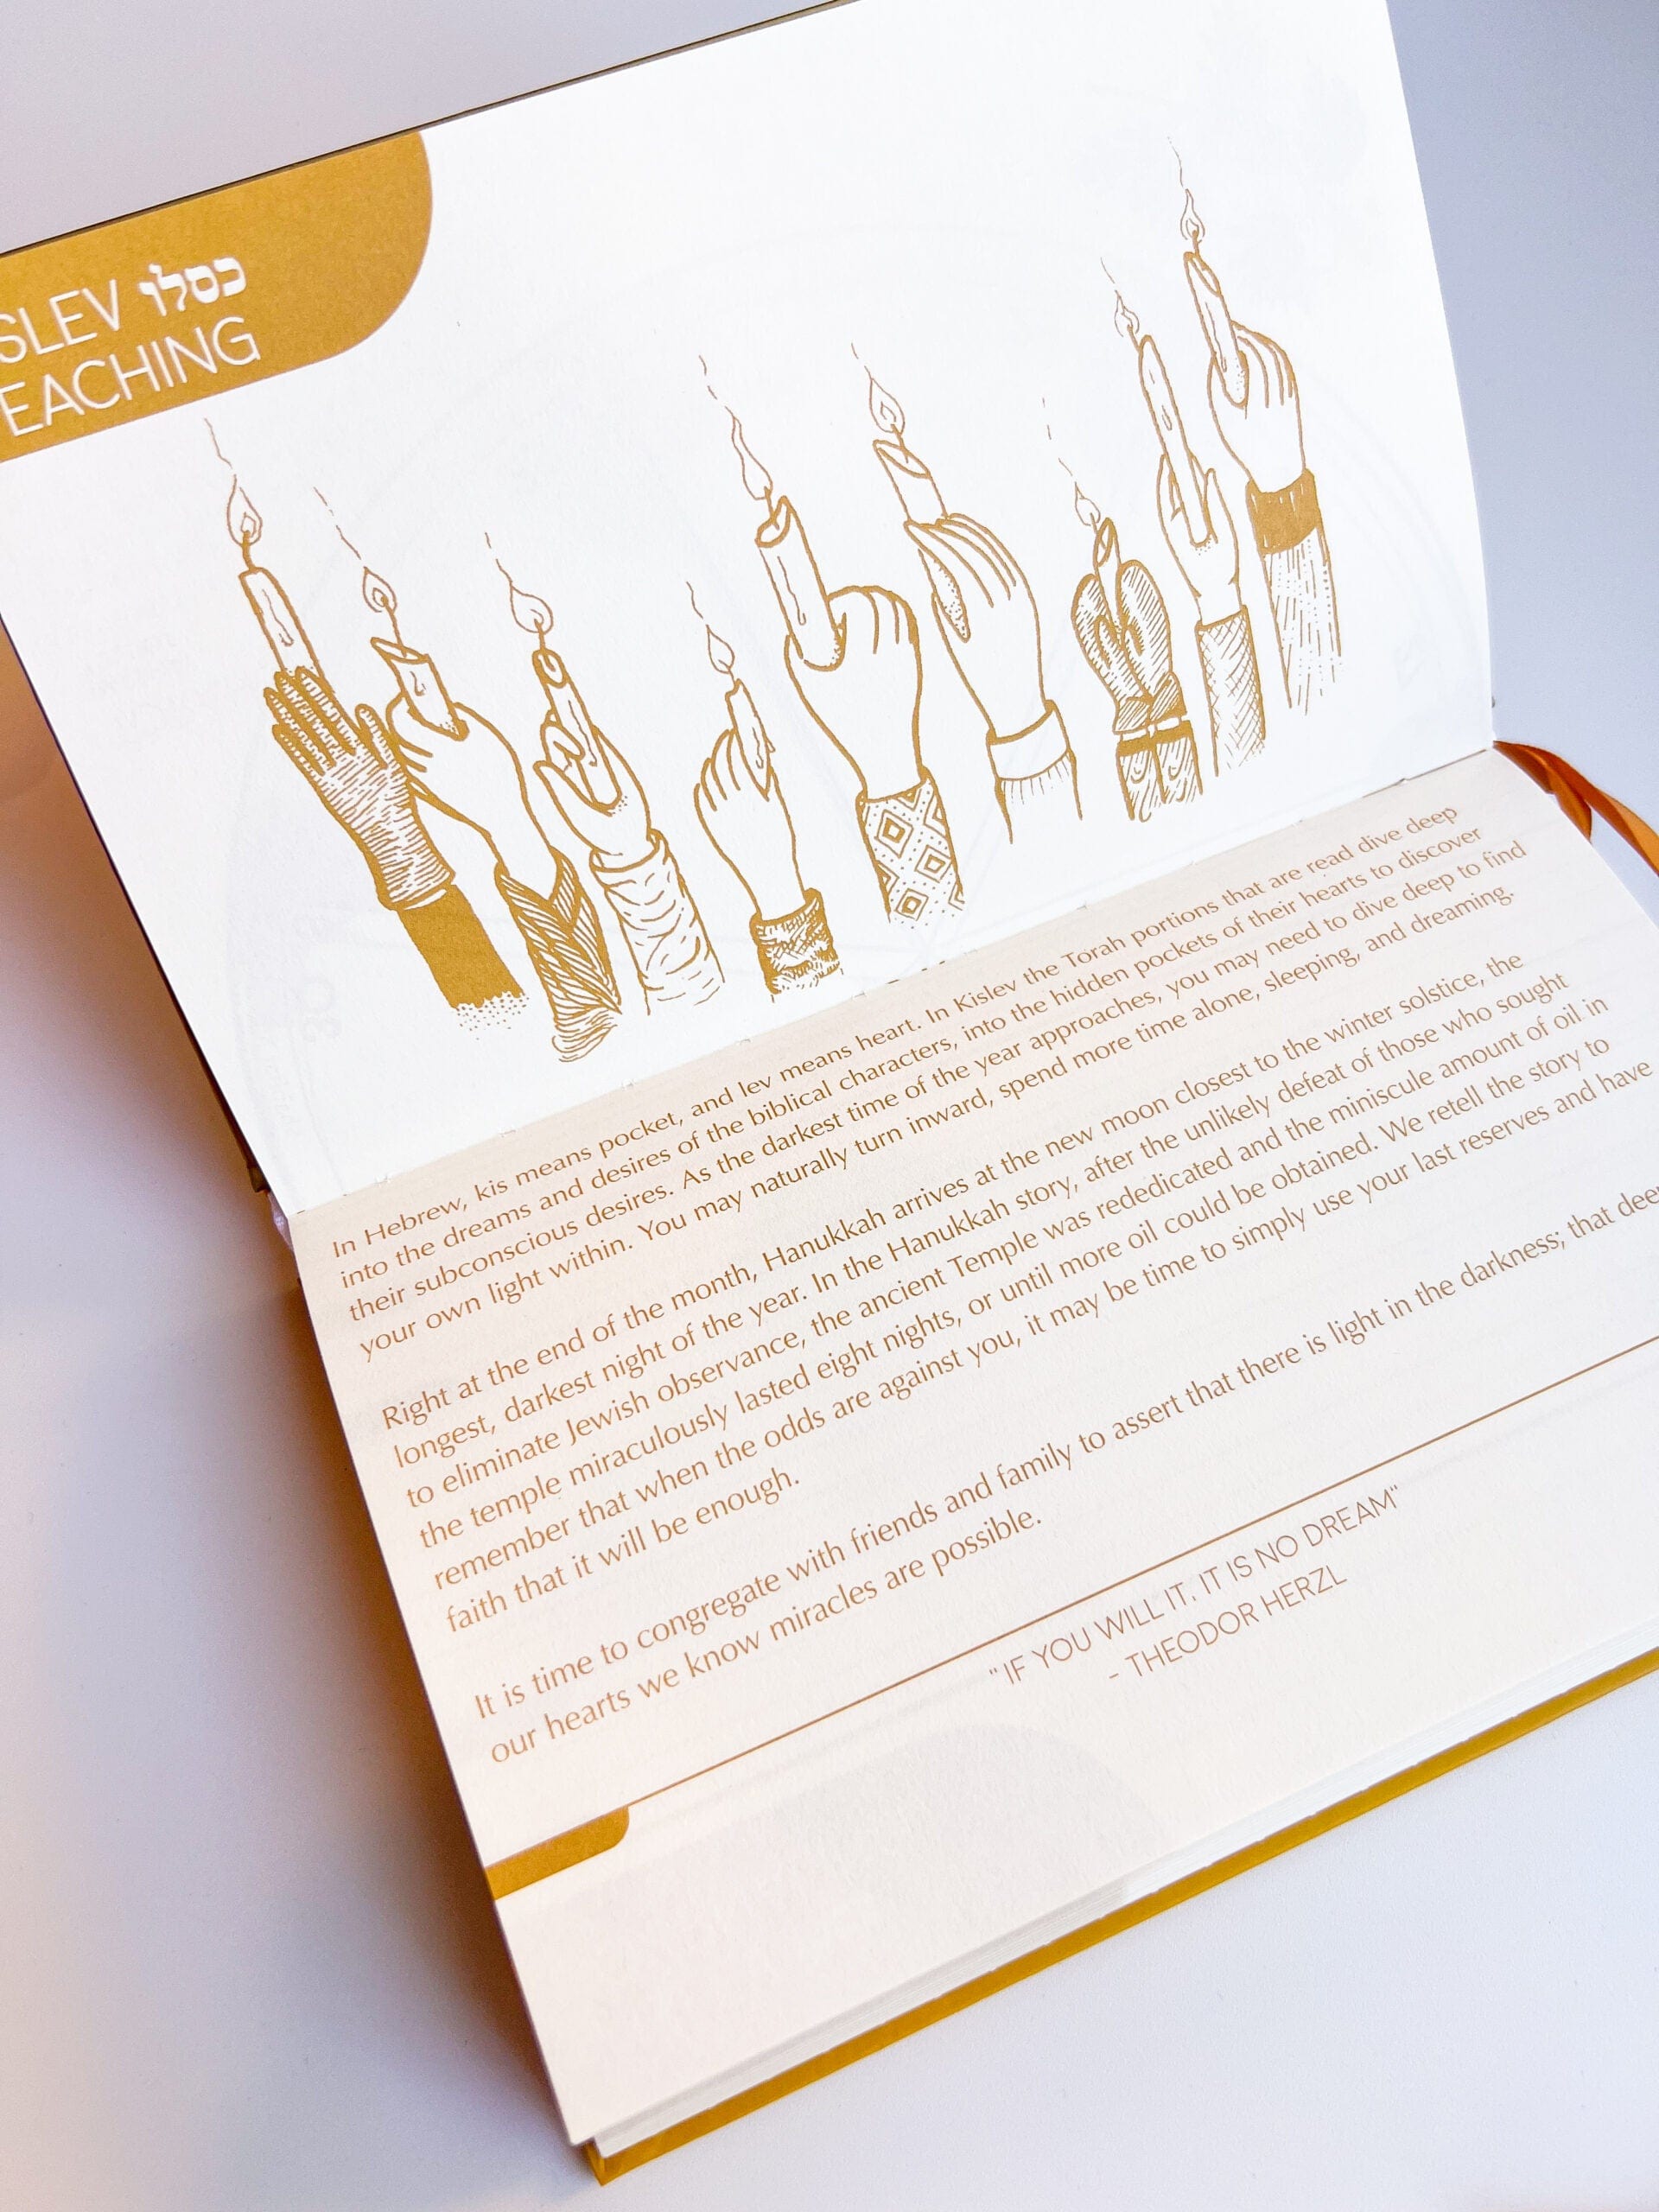 SLEV כסלו
EACHING
In Hebrew, kis means pocket, and lev means heart. In Kislev the Torah portions that are read dive deep
into the dreams and desires of the biblical characters, into the hidden pockets of their hearts to discover
their subconscious desires. As the darkest time of the year approaches, you may need to dive deep to find
your own light within. You may naturally turn inward, spend more time alone, sleeping, and dreaming.
Right at the end of the month, Hanukkah arrives at the new moon closest to the winter solstice, the
longest, darkest night of the year. In the Hanukkah story, after the unlikely defeat of those who sought
to eliminate Jewish observance, the ancient Temple was rededicated and the miniscule amount of oil in
the temple miraculously lasted eight nights, or until more oil could be obtained. We retell the story to
remember that when the odds are against you, it may be time to simply use your last reserves and have
faith that it will be enough.
It is time to congregate with friends and family to assert that there is light in the darkness; that deep
our hearts we know miracles are possible.
"IF YOU WILL IT, IT IS NO DREAM"
- THEODOR HERZL